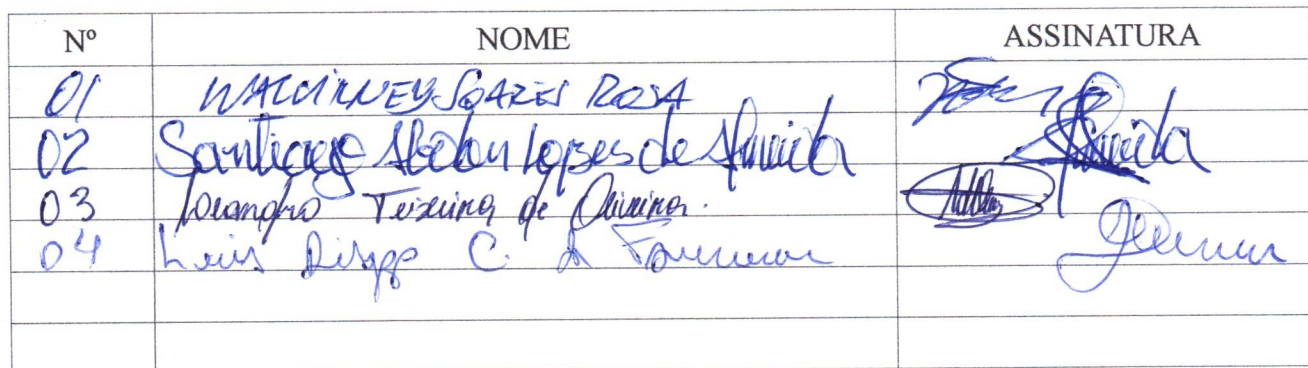 Nº NOME ASSINATURA
01 WALDIRNEY SOARES ROSA
02 Santiago Abdon Lopes de Almeida Almeida
03 Leandro Teixeira de Oliveira.
04 Luis Diogo C.